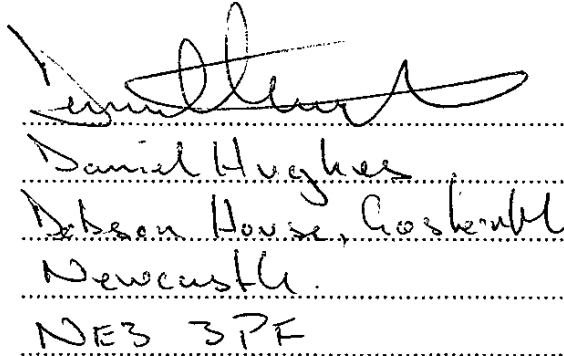 Daniel Hughes
Dobson House, Gosforth
Newcastle.
NE3 3PF